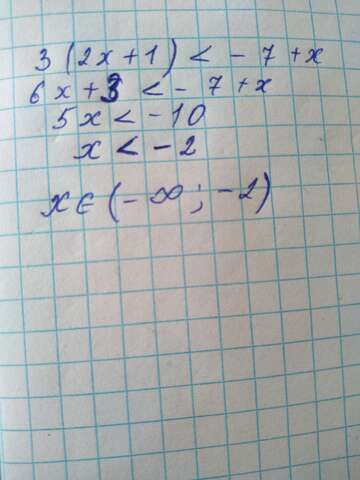 3(2x+1) < - 7 + x
6x+3 < - 7 + x
5x < -10
x < -2
x ∈ (-∞; -2)